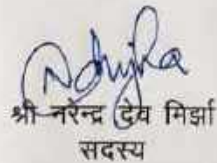 श्री नरेन्द्र देव मिर्झा
सदस्य